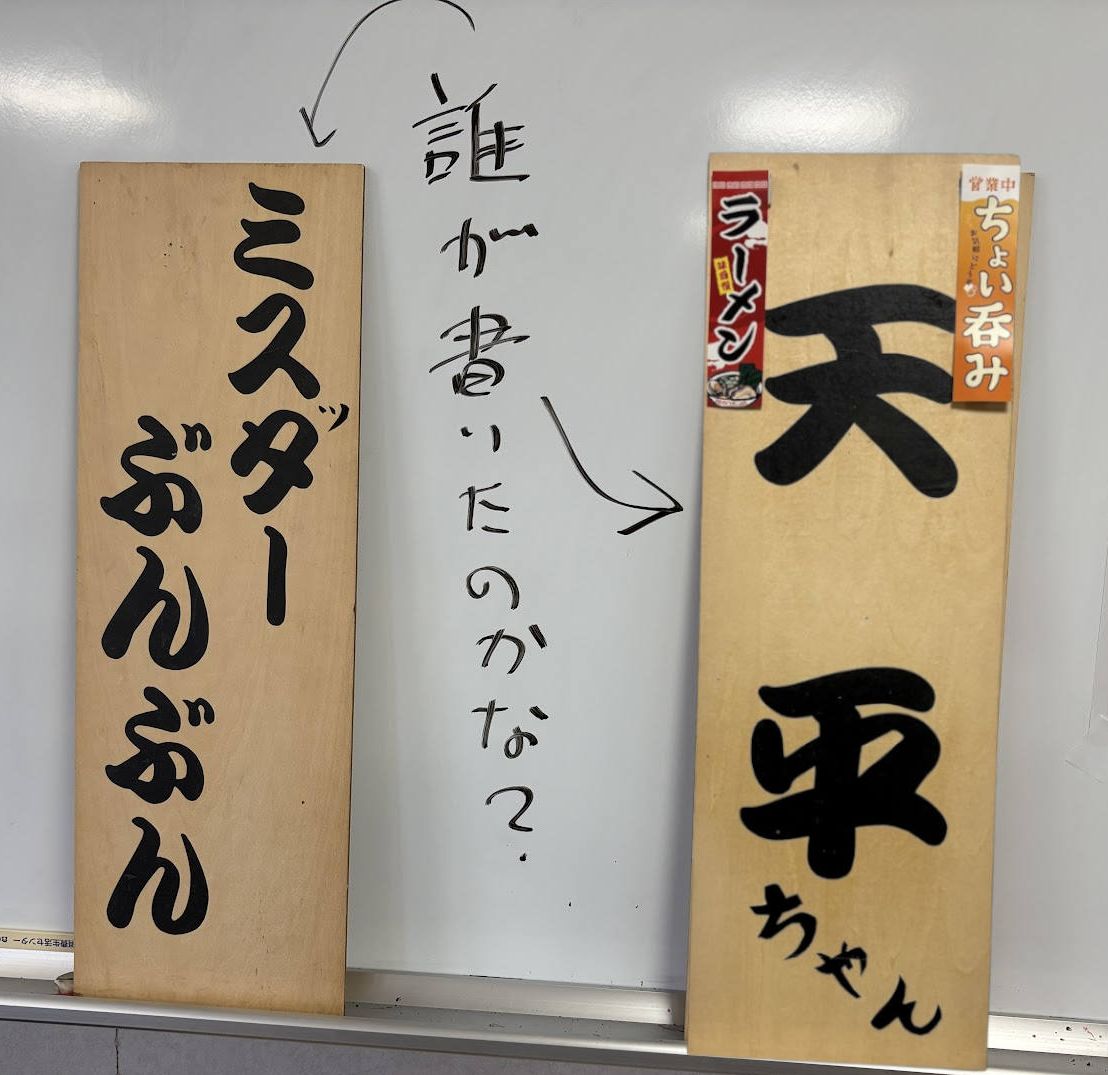 誰が書いたのかな？
ミスター
ぶんぶん
天平ちゃん
ラーメン
営業中
ちょい呑み